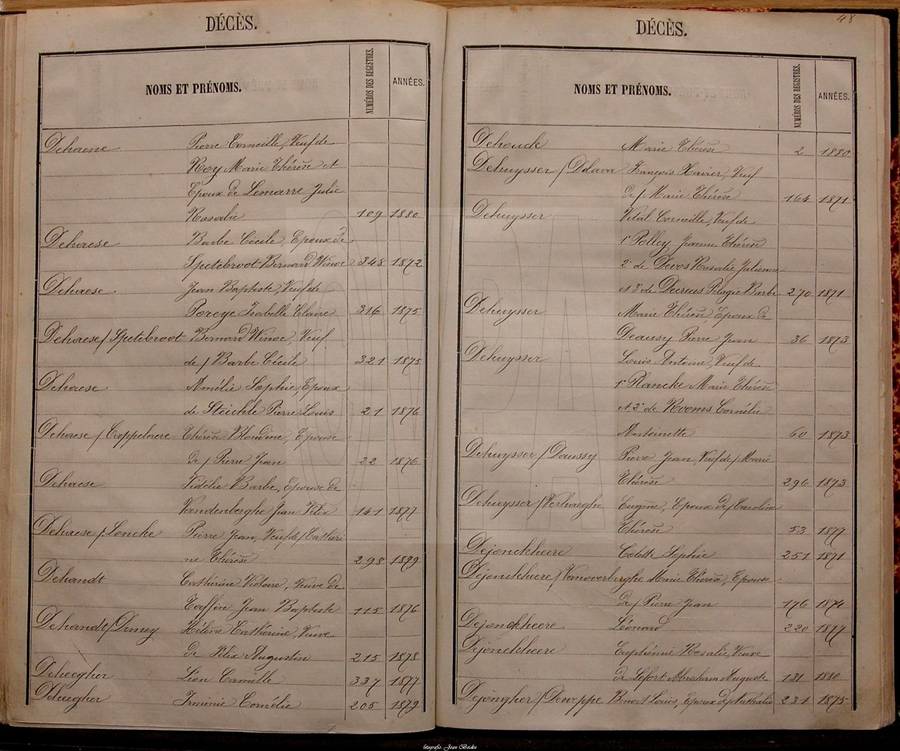 DÉCÈS.
NOMS ET PRÉNOMS.
NUMÉROS DES REGISTRES.
ANNÉES.
Dehaene Pierre Corneille, Veuf de
Roy Marie Thérèse et
Epoux de Lemarre Julie
Rosalie 109 1880
Dehaese Barbe Cécile, Epouse de
Spetebroot Bernard Winoc 348 1872
Dehaese Jean Baptiste, Veuf de
Isabelle Claire 216 1875
Dehaese / Spetebroot Bernard Winoc, Veuf
de / Barbe Cécile 321 1875
Dehaese Amélie Sophie, Epouse
de Pierre Louis 21 1876
Dehaese / Thérèse Blondine, Epouse
de / Pierre Jean 22 1876
Dehaese Fidélia Barbe, Epouse de
Vandenberghe Jean 141 1877
Dehaese / Loncke Pierre Jean, Veuf de / Cathari
ne Thérèse 298 1879
Dehandt Cathérine Victoire, Veuve de
Jean Baptiste 115 1876
Dehandt / Hélène Cathérine, Veuve
de Augustin 215 1878
Deheegher Camille 337 1877
Deheegher Cornélie 205 1879
DÉCÈS.
48
NOMS ET PRÉNOMS.
NUMÉROS DES REGISTRES.
ANNÉES.
Dehouck Marie Thérèse 2 1880
Dehuysser / François Xavier, Veuf
de / Marie Thérèse 164 1871
Dehuysser Vital Corneille, Veuf de
1° Polley Jeanne Thérèse
2° de Devos Rosalie Julienne
& 3° de Pélagie Barbe 270 1871
Dehuysser Marie Thérèse Epouse de
Pierre Jean 36 1873
Dehuysser Louis Antoine, Veuf de
1° Plancke Marie Thérèse
& 2° de Rooms Cornélie
Antoinette 60 1873
Dehuysser / Daussy Pierre Jean, Veuf de / Marie
Thérèse 296 1873
Dehuysser / Verhaeghe Eugène, Epoux de / Caroline
Thérèse 53 1877
Dejonckheere Colette Sophie 251 1871
Dejonckheere / Vanoverberghe Marie Thérèse, Epouse
de / Pierre Jean 176 1874
Dejonckheere Léonard 220 1877
Dejonckheere Euphémie Rosalie Veuve
de Lefort Abraham Auguste 131 1880
Dejongher / Benoit Louis, Epoux de / Nathalie 231 1875
fotografie Jean Beeke